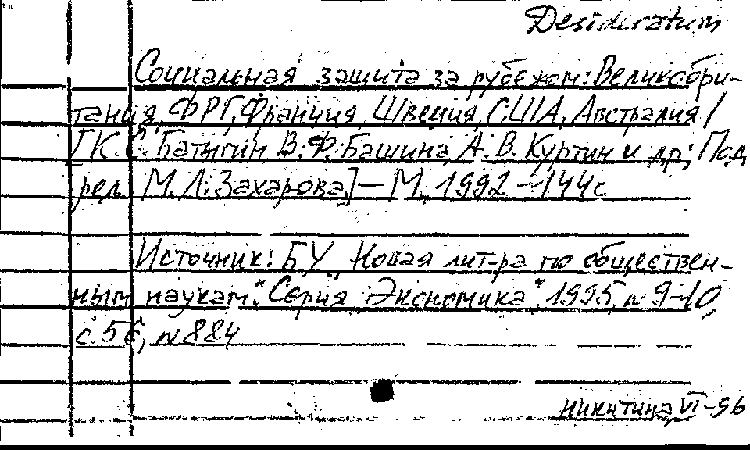 Desideratum
Социальная защита за рубежом: Великобри-
тания, ФРГ, Франция, Швеция, США, Австралия /
[К. С. Батыгин, В. Ф. Башина, А. В. Куртин и др; Под
ред. М. Л. Захарова] — М., 1992 - 144 с
Источник: БУ "Новая лит-ра по обществен-
ным наукам." Серия "Экономика", 1995, n 9-10,
с. 56, n 884
Никитина, VI-96